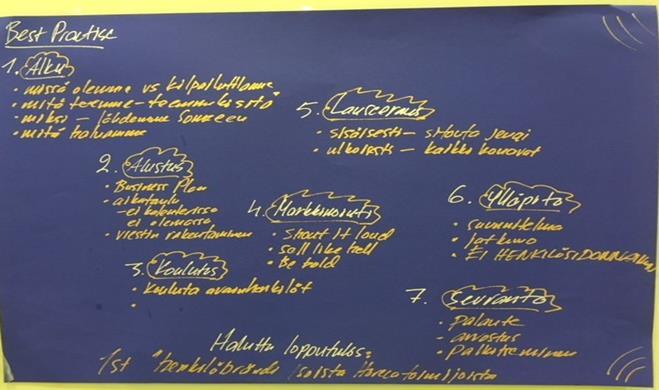 Best Practise
1. Alku
• missä olemme vs kilpailutilanne
• mitä teemme – toimenkuvista
• miksi – lähdemme Someen
• mitä haluamme
2. Alustus
• Business Plan
• aikataulu
– ei kalenterissa
ei olemassa
• viestin rakentaminen
3. Koulutus
• kouluta avainhenkilöt
•
4. Markkinointi
• Shout it loud
• Sell like hell
• Be bold
5. Lanseeraus
• sisäisesti – sitouta
• ulkoisesti – kaikki kanavat
6. Ylläpito
• suunnitelma
• jatkuva
• EI HENKILÖSIDONNAINEN
7. Seuranta
• palaute
• arvostus
• palkitseminen
Haluttu lopputulos:
1st "henkilöbrändi isoista